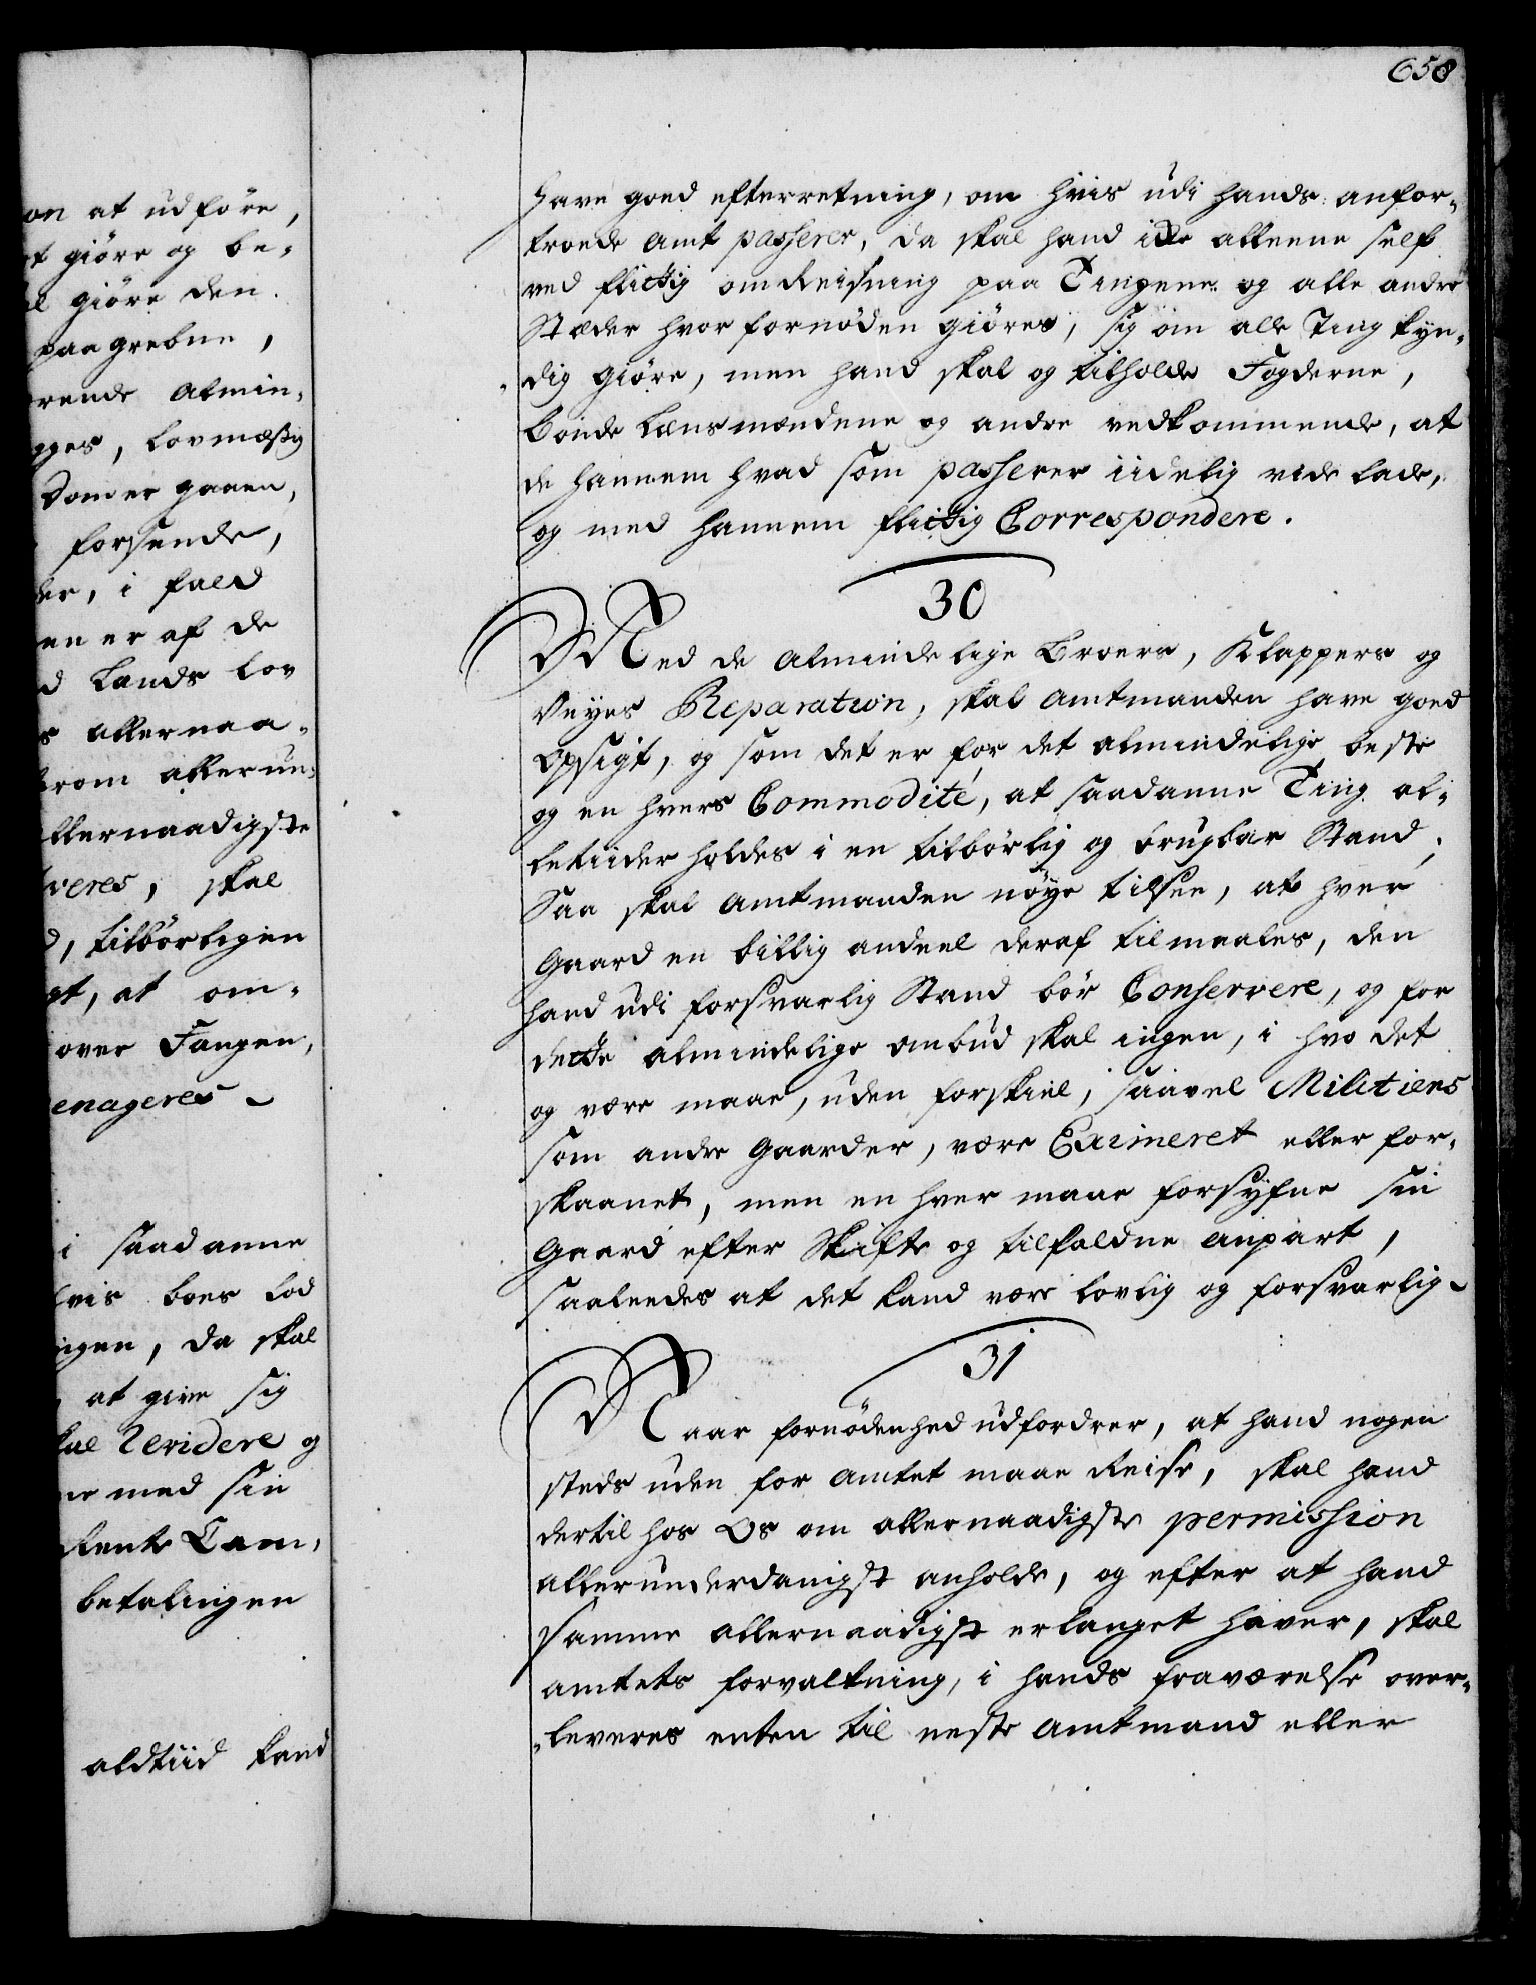 on at udføre,
et giöre og be-
al giöre den.
paagrebne,
rende Almin-
gges, Lovmæßig
Dom er gaaen,
forsende,
der, i fald
en er af de
d Lands Lov
s allernaa-
from allerun-
llernaadigste
veres, skal
d, tilbörligen
gt, at om-
over Fangen,
enageres
i saadanne
hvis boes Lod
ingen, da skal
, at give sig
kal Revidere og
ne med sin
Rente Cam-
betalingen
aldtiid kand
658
have goed efterretning, om hvis udi hands anfor-
troede Amt passerer, da skal hand ikke alleene self
ved flittig omReisning paa Tingene og alle andre
Stæder hvor fornöden giöres, sig om alle Ting kyn-
dig giöre, men hand skal og tilholde Fogderne,
Bonde Lænsmændene og andre vedkommende, at
de hannem hvad som passerer iidelig vide lade,
og med hannem flittig Correspondere.
30
Med de Almindelige Broers, Klappers og
Veyes Reparation, skal Amtmanden have goed
Opsigt, og som det er for det almindelige beste
og en hvers Commodité, at saadanne Ting al-
letiider holdes i en tilbörlig og brugbar Stand;
Saa skal Amtmanden nöye tilsee, at hver
Gaard en billig andeel deraf tilmaales, den
hand udi forsvarlig Stand bör Conservere, og for
dette almindelige ombud skal ingen, i hvo det
og være maae, uden forskiel, saavel Militiens
som andre Gaarder, være Eximeret eller for-
skaanet, men en hver maae forsyfne sin
Gaard efter Skifte og tilfaldne anpart,
saaleedes at det kand være lovlig og forsvarlig
31
Naar fornödenhed udfordrer, at hand nogen
steds uden for Amtet maae Reise, skal hand
dertil hos Os om allernaadigste permission
allerunderdanigst anholde, og efter at hand
samme allernaadigst erlanget haver, skal
Amtets forvaltning, i hands fraværelse over-
leveres enten til neste Amtmand eller